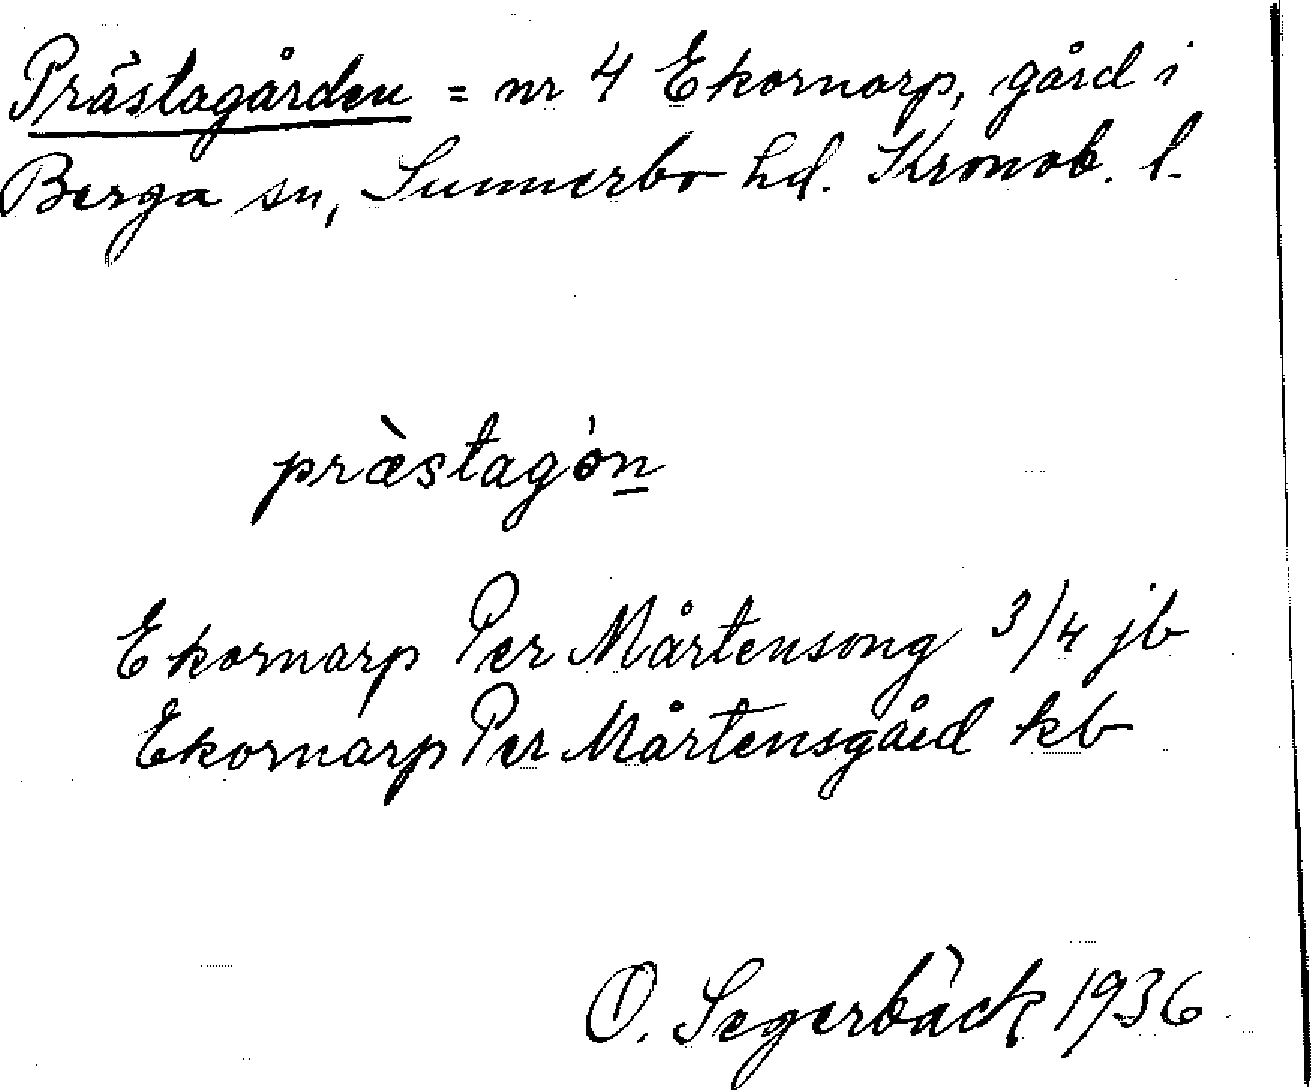 Prästagården = nr 4 Ekornarp, gård i
Berga sn, Sunnerbo hd. Kronob. l.
præ̀stagón̲
Ekornarp Per Mårtensong 3/4 jb
Ekornarp Per Mårtensgård kb
O. Segerbäck 1936